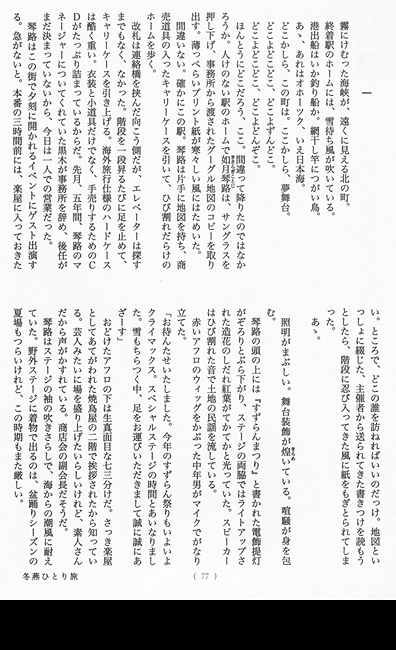 一
霧にけむった海峡が、遠くに見える北の町。
終着駅のホームには、雪待ち風が吹いている。
港出船はいか釣り船か。網干し竿につがい鳥。
あゝ、あれはオホーツク、いえ日本海。
どこかしら、この町は。ここかしら、夢舞台。
どこよどこどこ、どこよずんどこ。
どこよどこどこ、どこよどんどこ。
ほんとうにどこだろう、ここ。間違って降りたのではなか
ろうか。人けのない駅のホームで如月琴路は、サングラスを
押し下げ、事務所から渡されたグーグル地図のコピーを取り
出す。薄っぺらいプリント紙が寒々しい風にはためいた。
間違いない。確かにこの駅。琴路は片手に地図を持ち、商
売道具の入ったキャリーケースを引いて、ひび割れだらけの
ホームを歩く。
改札は連絡橋を挟んだ向こう側だが、エレベーターは探す
までもなく、なかった。階段を一段昇るたびに足を止めて、
キャリーケースを引き上げる。海外旅行仕様のハードケース
は酷く重い。衣装と小道具だけでなく、手売りするためのＣ
Ｄがたっぷり詰まっているからだ。先月、五年間、琴路のマ
ネージャーについてくれていた黒木が事務所を辞め、後任が
まだ決まっていないから、今日は一人での営業だった。
琴路はこの街で夕刻に開かれるイベントにゲスト出演す
る。急がないと。本番の三時間前には、楽屋に入っておきた
い。ところで、どこの誰を訪ねればいいのだっけ。地図とい
っしょに綴じた、主催者から送られてきた書きつけを読もう
としたら、階段に忍び入ってきた風に紙をもぎとられてしま
った。
あゝ。
照明がまぶしい。舞台装飾が煌いている。喧騒が身を包
む。
琴路の頭の上には『すずらんまつり』と書かれた電飾提灯
がぞろりとぶら下がり、ステージの両脇ではライトアップさ
れた造花のしだれ紅葉がてかてかと光っていた。スピーカー
はひび割れた音で土地の民謡を流している。
赤いアフロのウィッグをかぶった中年男がマイクでがなり
立てた。
「お待たせいたしました。今年のすずらん祭りもいよいよ
クライマックス、スペシャルステージの時間とあいなりまし
た。雪もちらつく中、足をお運びいただきまして誠にあ
ざーす」
おどけたアフロの下は生真面目な七三分けだ。さっき楽屋
としてあてがわれた焼鳥屋の二階で挨拶されたから知ってい
る。芸人みたいに場を盛り上げたいらしいけれど、素人さん
だから声がかすれている。商店会の副会長だそうだ。
琴路はステージの袖の吹きさらしで、海からの潮風に耐え
ていた。野外ステージに着物で出るのは、盆踊りシーズンの
夏場もつらいけれど、この時期もまた厳しい。
( 77 )
冬燕ひとり旅